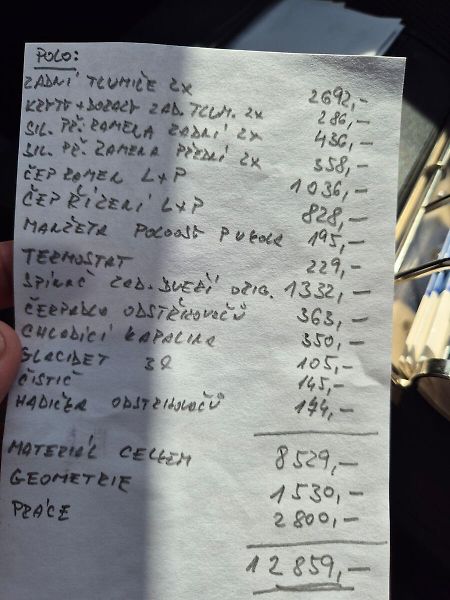 POLO:
ZADNÍ TLUMIČE 2X 2692,-
KRYTY + DORAZY ZAD. TLUM. 2X 286,-
SIL. PŘ. RAMENA ZADNÍ 2X 436,-
SIL. PŘ. RAMENA PŘEDNÍ 2X 358,-
ČEP RAMEN L+P 1036,-
ČEP ŘÍZENÍ L+P 828,-
MANŽETA POLOOSY P U KOLA 195,-
TERMOSTAT 229,-
SPÍNAČ ZAD. DVEŘÍ ORIG. 1332,-
ČERPADLO ODSTŘIKOVAČŮ 363,-
CHLADÍCÍ KAPALINA 350,-
GLACIDET 3L 105,-
ČISTIČ 145,-
HADIČKA ODSTŘIKOVAČŮ 174,-
MATERIÁL CELKEM 8529,-
GEOMETRIE 1530,-
PRÁCE 2800,-
12859,-